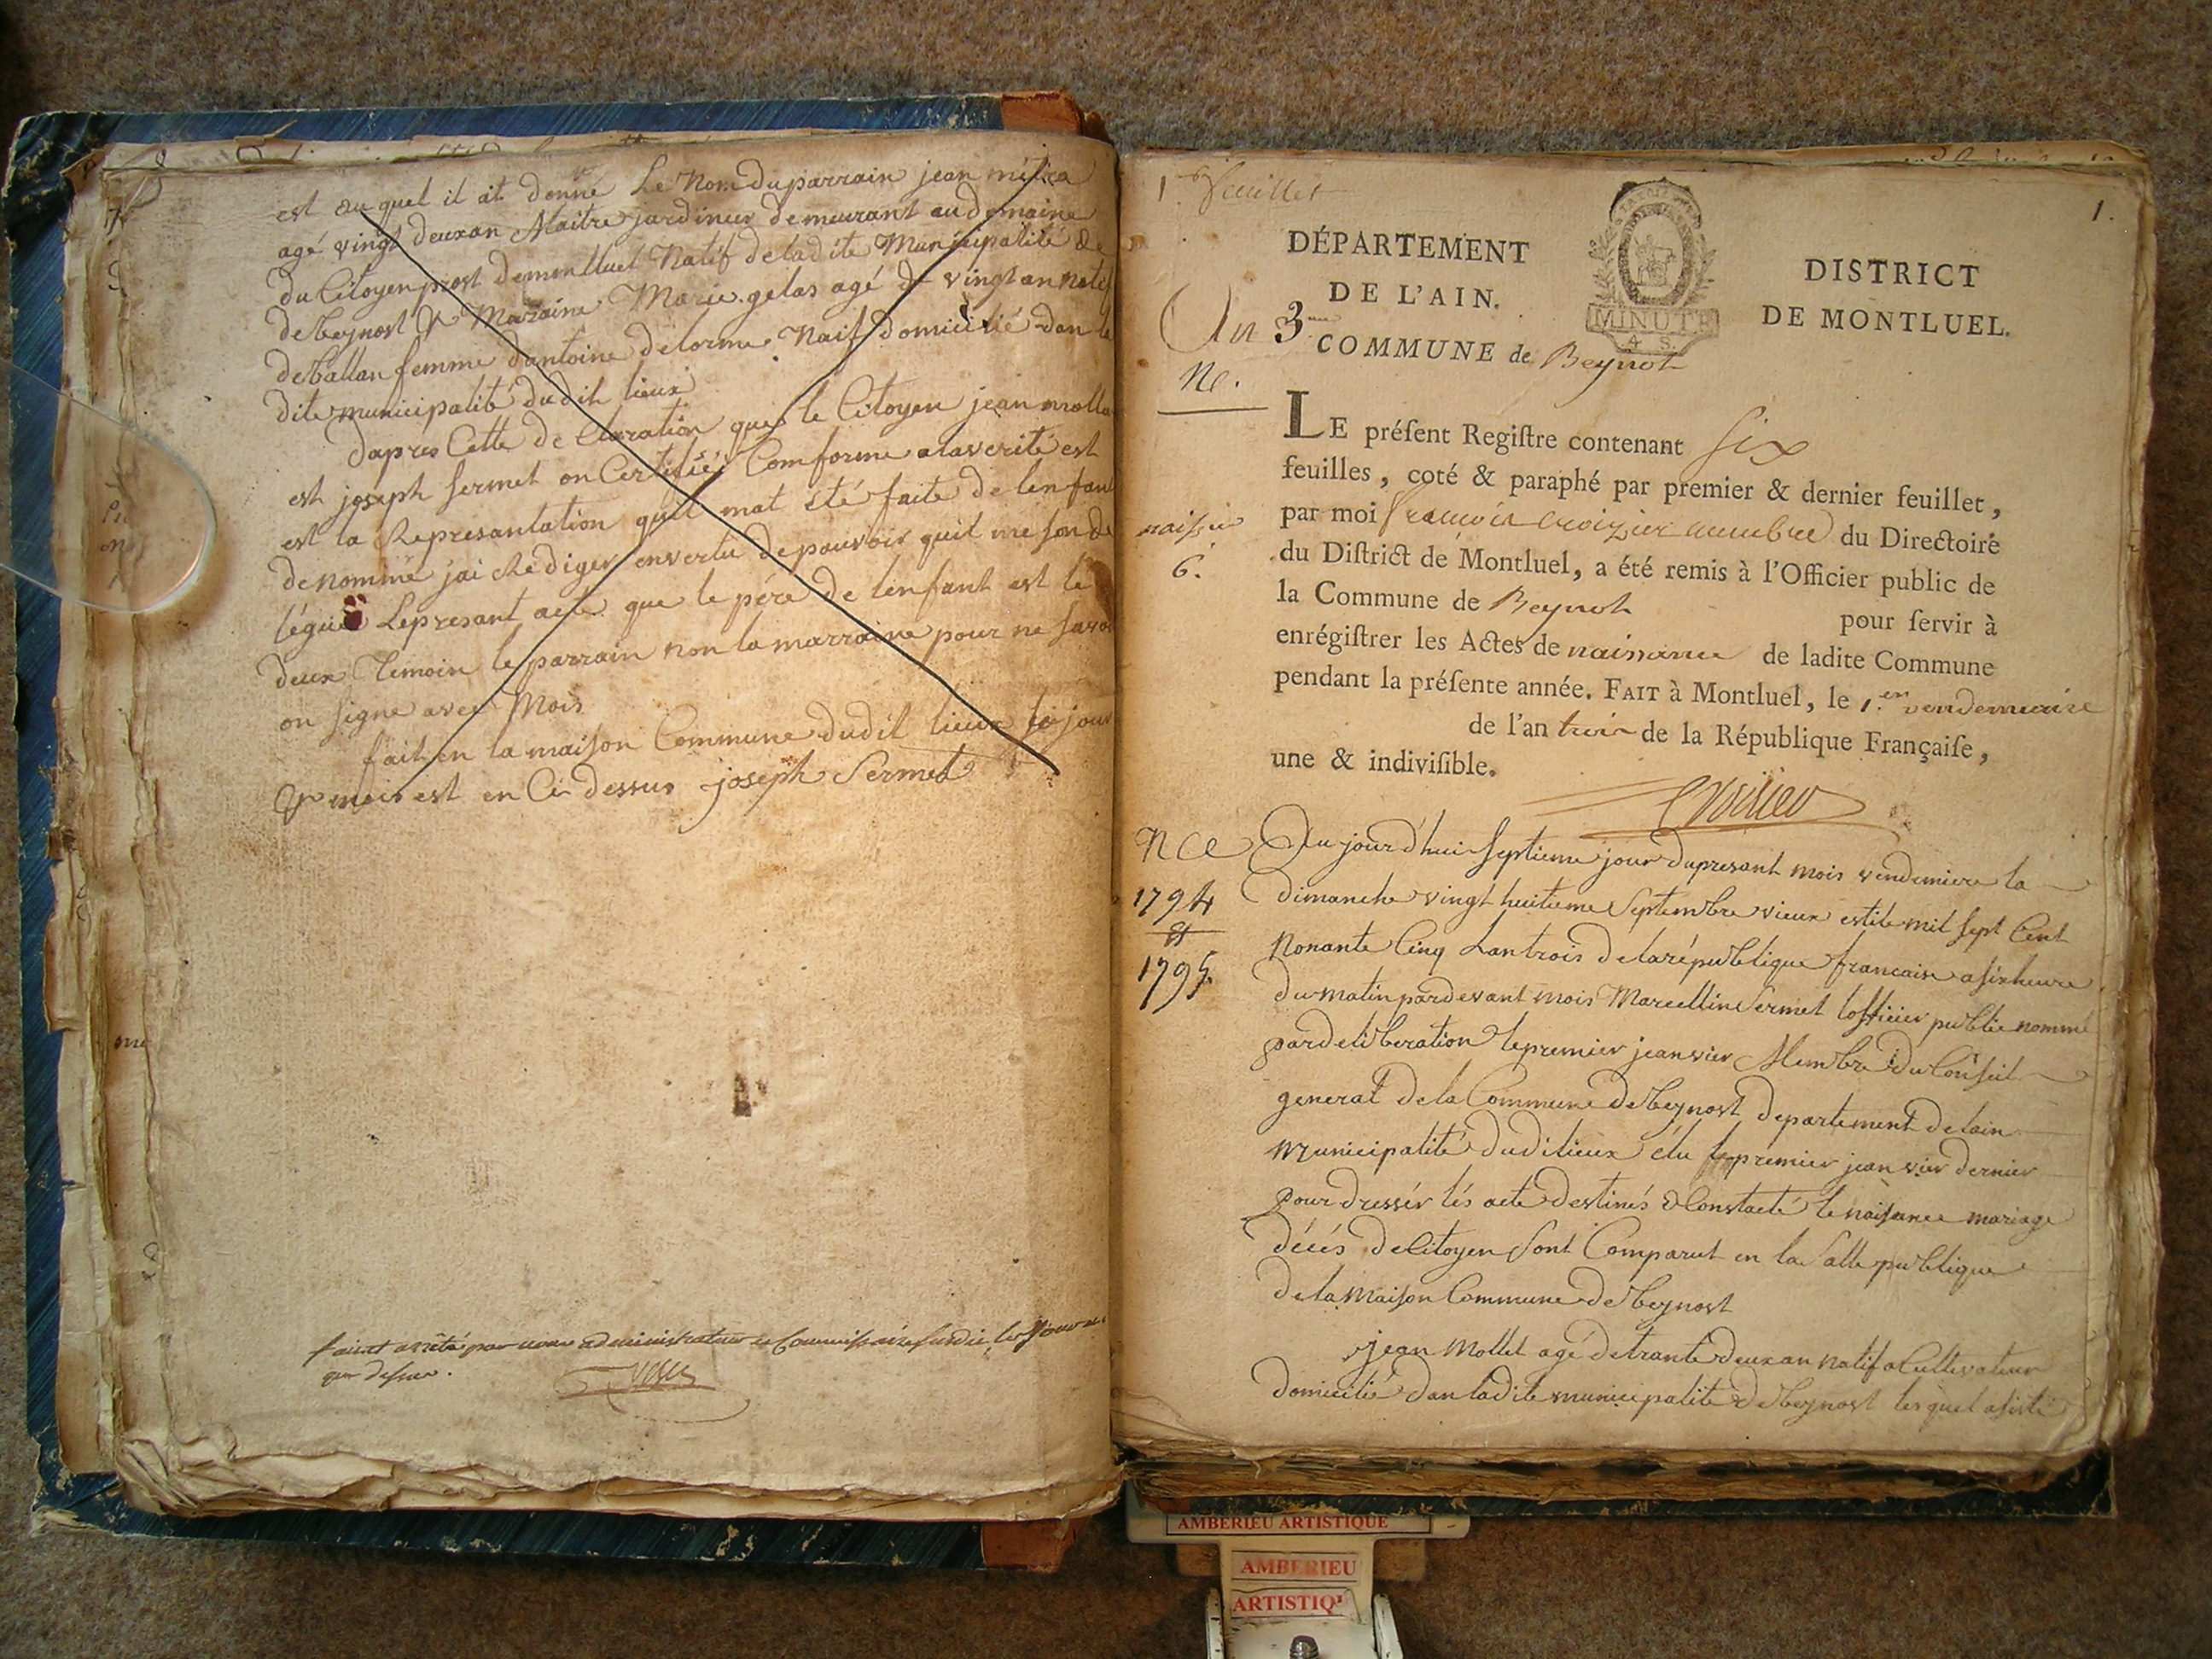 est au quel il at donné Le Nom du parrain jean
agé vingt deux an Maitre jardinier demeurant au domaine
du Citoyen prost demonlluel Natif deladite Municipalité de
de beynost & Marraine Marie gelas agé de vingt an natif
deballan femme dantoine delorme Naif domicilié dan la
dite municipalité dudit lieux
dapres Cette de Claration que le Citoyen jean molla
est joseph sermet on Certifié Comforme alaverité est
est la Represantation quil mat été faite de lenfant
denommé jai Rediger envertu de pouvoir quil me son de
légué Lepresant acte que le pére de lenfant est le
deux Temoin le parrain non la marraine pour ne savoi
on signe avec Mois
fait en la maison Commune dudit lieux jour
& mois est en Ci dessus joseph Sermet
fait et arrêté par nous administrateur et Commissaire susdit, les jour
que dessus.
1er feuillet
1.
DÉPARTEMENT
DE L'AIN.
An 3
COMMUNE de Beynost
DISTRICT
DE MONTLUEL.
MINUTE
4 S.
Ne.
LE préſent Regiſtre contenant six
feuilles, coté & paraphé par premier & dernier feuillet,
par moi francois croizier membre du Directoire
du Diſtrict de Montluel, a été remis à l'Officier public de
la Commune de Beynost pour ſervir à
enrégiſtrer les Actes de naissance de ladite Commune
pendant la préſente année. FAIT à Montluel, le 1.er vendemiaire
de l'an trois de la République Françaiſe,
une & indiviſible.
6.
Nce
1794
et
1795
Au jourd'hui septieme jour dupresant mois vendemiere la
dimanche vingt huitieme Septembre vieux estile mil sept Cent
Nonante Cinq Lan trois de la république francaise asixheure
dumatin pardevant mois Marcellin Sermet lofficier public nommé
pardeliberation lepremier jeanvier Membre du Conseil
general dela Commune deBeynost departement delain
Municipalité dudilieux élu lepremier jeanvier dernier
pour dressér lés acte destinés a Constaté le naisance mariage
décés deCitoyen Sont Comparut en la Salle publique
dela Maison Commune deBeynost
jean Mollet agé detrante deux an natif a Cultivateur
domicilié dan ladite municipalité deBeynost lesquel asisté
AMBERIEU ARTISTIQUE
AMBERIEU
ARTISTIQ